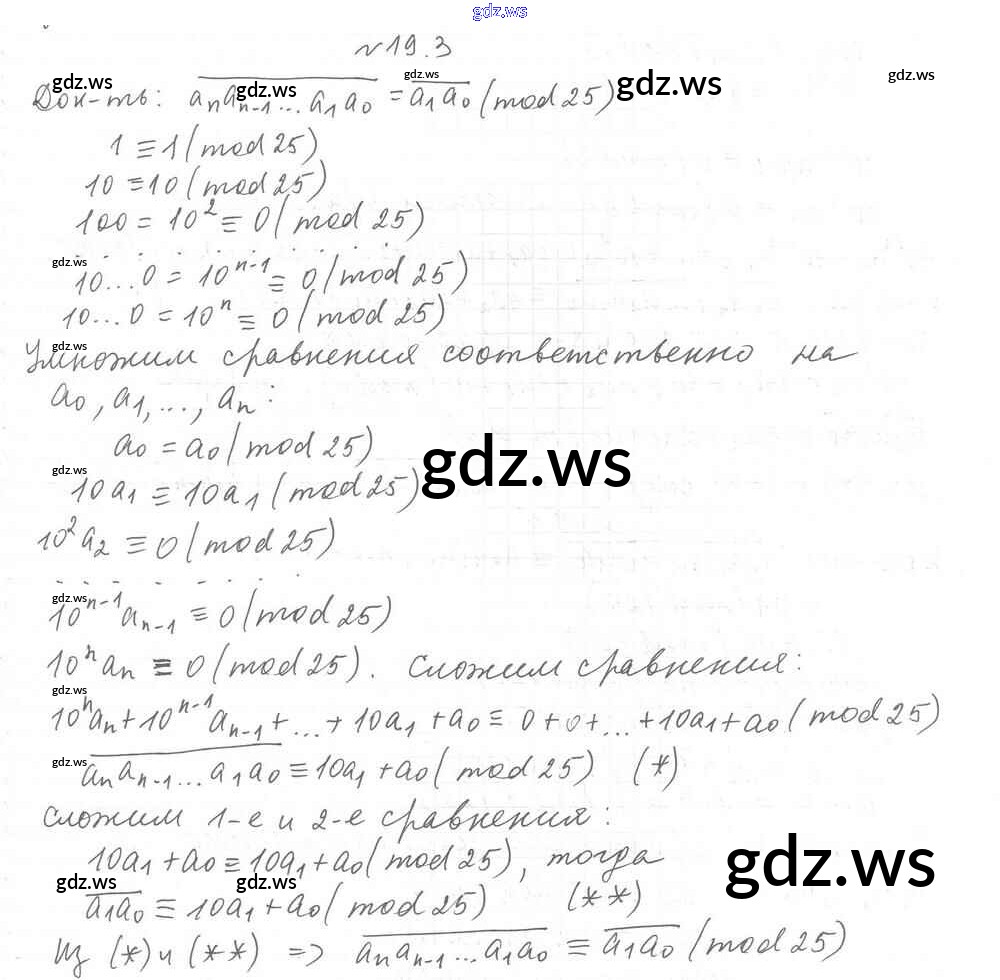 gdz.ws
№19.3
gdz.ws gdz.ws gdz.ws gdz.ws gdz.ws
Док-ть: a̅ₙa̅ₙ₋₁...a̅₁a̅₀ = a̅₁a̅₀ (mod 25)
1 ≡ 1 (mod 25)
10 ≡ 10 (mod 25)
100 = 10² ≡ 0 (mod 25)
. . . . . . . . . .
gdz.ws
10...0 = 10ⁿ⁻¹ ≡ 0 (mod 25)
10...0 = 10ⁿ ≡ 0 (mod 25)
gdz.ws
Умножим сравнения соответственно на
a₀, a₁, ..., aₙ:
a₀ = a₀ (mod 25)
gdz.ws gdz.ws
10a₁ ≡ 10a₁ (mod 25)
10²a₂ ≡ 0 (mod 25)
- - - - - . . .
gdz.ws
10ⁿ⁻¹aₙ₋₁ ≡ 0 (mod 25)
10ⁿaₙ ≡ 0 (mod 25). Сложим сравнения:
gdz.ws
10ⁿaₙ + 10ⁿ⁻¹aₙ₋₁ + ... + 10a₁ + a₀ ≡ 0 + 0 + ... + 10a₁ + a₀ (mod 25)
gdz.ws
a̅ₙa̅ₙ₋₁...a̅₁a̅₀ ≡ 10a₁ + a₀ (mod 25) (*)
Сложим 1-е и 2-е сравнения:
10a₁ + a₀ ≡ 10a₁ + a₀ (mod 25), тогда
gdz.ws gdz.ws gdz.ws
a̅₁a̅₀ ≡ 10a₁ + a₀ (mod 25) (**)
Из (*) и (**) => a̅ₙa̅ₙ₋₁...a̅₁a̅₀ ≡ a̅₁a̅₀ (mod 25)